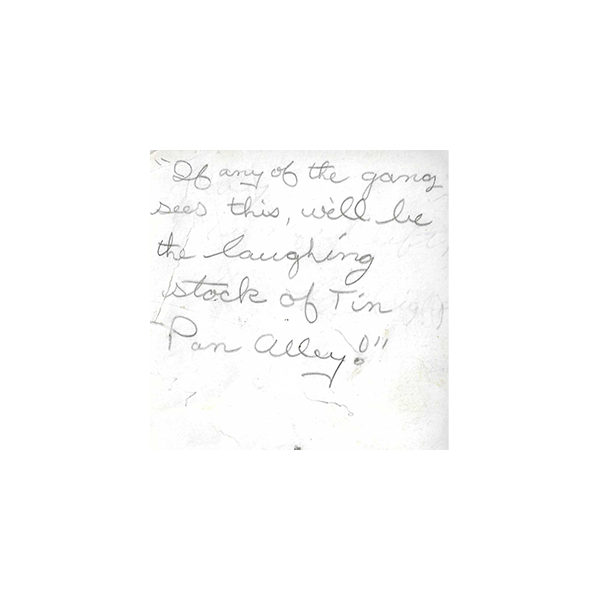 "If any of the gang
sees this, we'll be
the laughing
stock of Tin
Pan Alley!"